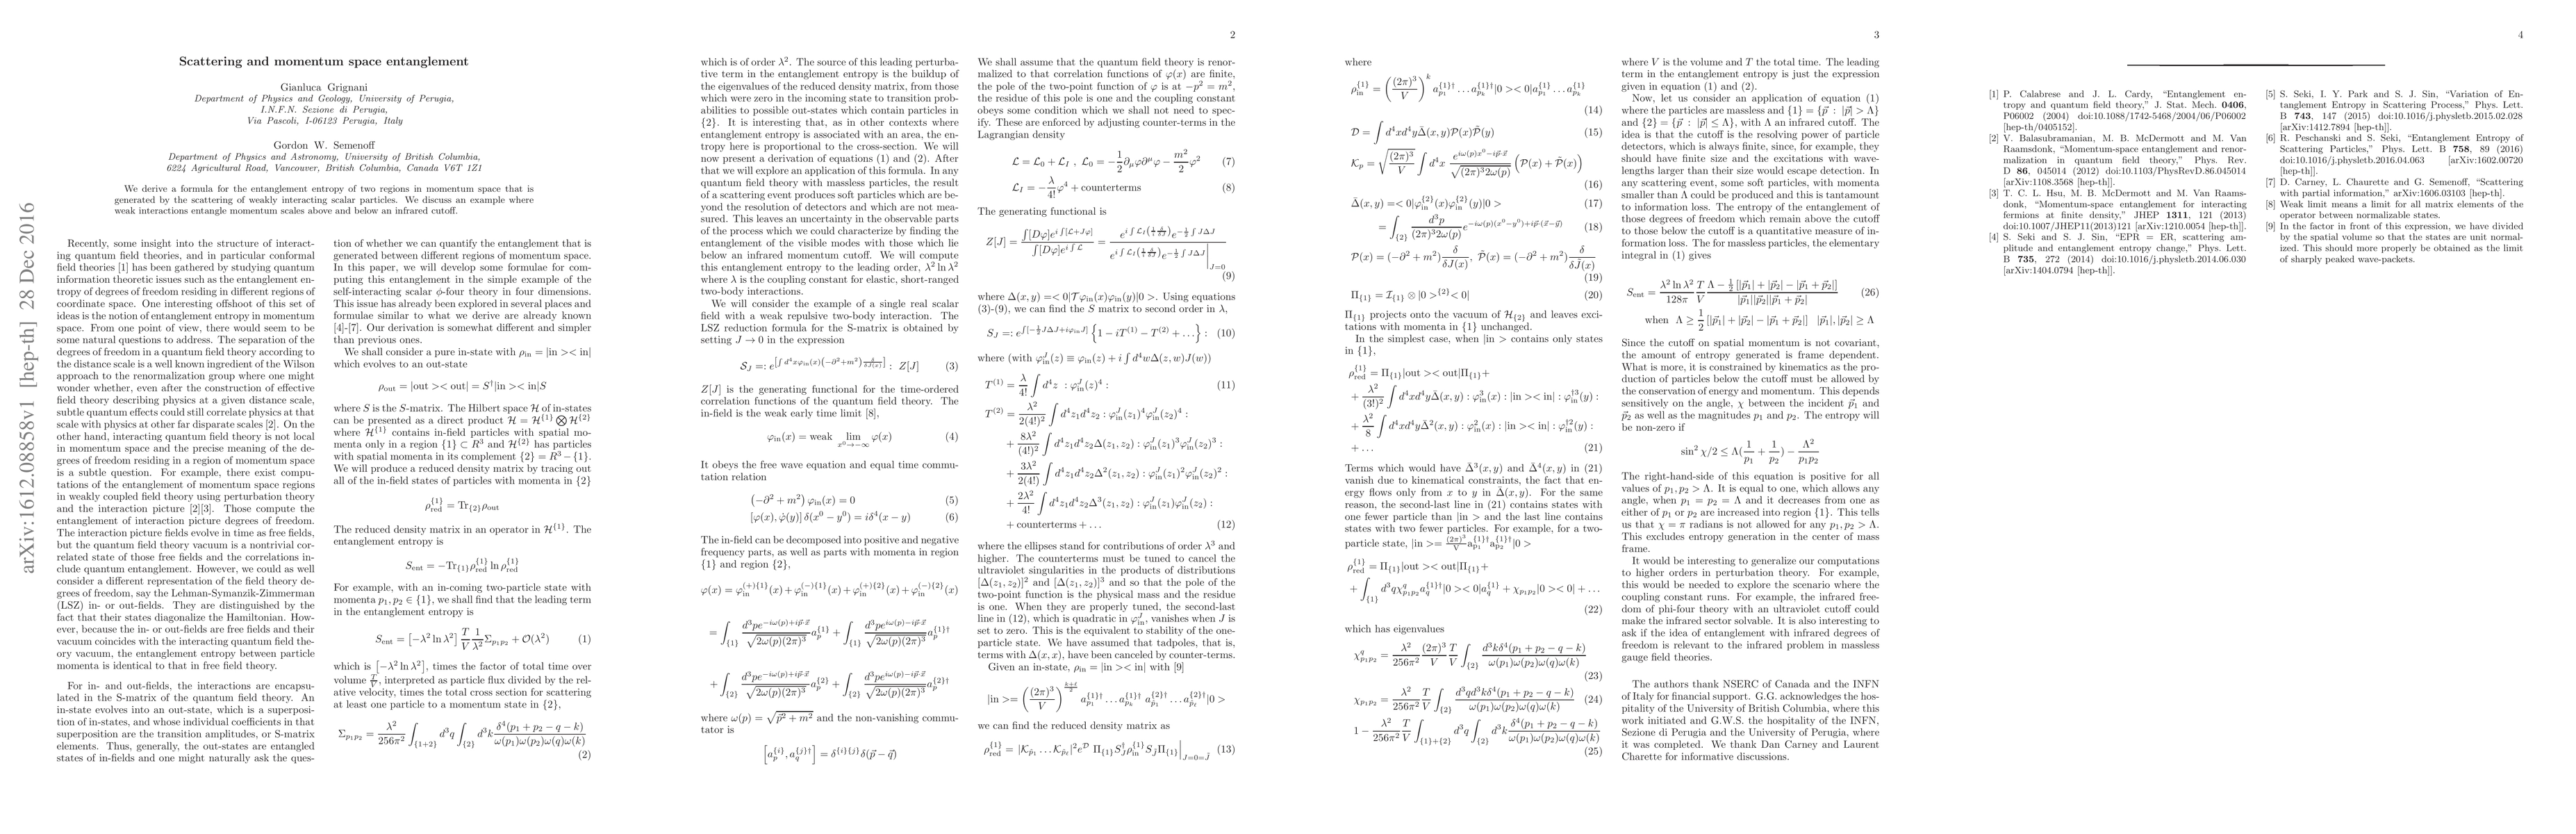 arXiv:1612.08858v1 [hep-th] 28 Dec 2016
Scattering and momentum space entanglement
Gianluca Grignani
Department of Physics and Geology, University of Perugia,
I.N.F.N. Sezione di Perugia,
Via Pascoli, I-06123 Perugia, Italy
Gordon W. Semenoff
Department of Physics and Astronomy, University of British Columbia,
6224 Agricultural Road, Vancouver, British Columbia, Canada V6T 1Z1
We derive a formula for the entanglement entropy of two regions in momentum space that is
generated by the scattering of weakly interacting scalar particles. We discuss an example where
weak interactions entangle momentum scales above and below an infrared cutoff.
Recently, some insight into the structure of interact-
ing quantum field theories, and in particular conformal
field theories [1] has been gathered by studying quantum
information theoretic issues such as the entanglement en-
tropy of degrees of freedom residing in different regions of
coordinate space. One interesting offshoot of this set of
ideas is the notion of entanglement entropy in momentum
space. From one point of view, there would seem to be
some natural questions to address. The separation of the
degrees of freedom in a quantum field theory according to
the distance scale is a well known ingredient of the Wilson
approach to the renormalization group where one might
wonder whether, even after the construction of effective
field theory describing physics at a given distance scale,
subtle quantum effects could still correlate physics at that
scale with physics at other far disparate scales [2]. On the
other hand, interacting quantum field theory is not local
in momentum space and the precise meaning of the de-
grees of freedom residing in a region of momentum space
is a subtle question. For example, there exist compu-
tations of the entanglement of momentum space regions
in weakly coupled field theory using perturbation theory
and the interaction picture [2][3]. Those compute the
entanglement of interaction picture degrees of freedom.
The interaction picture fields evolve in time as free fields,
but the quantum field theory vacuum is a nontrivial cor-
related state of those free fields and the correlations in-
clude quantum entanglement. However, we could as well
consider a different representation of the field theory de-
grees of freedom, say the Lehman-Symanzik-Zimmerman
(LSZ) in- or out-fields. They are distinguished by the
fact that their states diagonalize the Hamiltonian. How-
ever, because the in- or out-fields are free fields and their
vacuum coincides with the interacting quantum field the-
ory vacuum, the entanglement entropy between particle
momenta is identical to that in free field theory.
For in- and out-fields, the interactions are encapsu-
lated in the S-matrix of the quantum field theory. An
in-state evolves into an out-state, which is a superposi-
tion of in-states, and whose individual coefficients in that
superposition are the transition amplitudes, or S-matrix
elements. Thus, generally, the out-states are entangled
states of in-fields and one might naturally ask the ques-
tion of whether we can quantify the entanglement that is
generated between different regions of momentum space.
In this paper, we will develop some formulae for com-
puting this entanglement in the simple example of the
self-interacting scalar ϕ-four theory in four dimensions.
This issue has already been explored in several places and
formulae similar to what we derive are already known
[4]-[7]. Our derivation is somewhat different and simpler
than previous ones.
We shall consider a pure in-state with ρ_in = |in >< in|
which evolves to an out-state
ρ_out = |out >< out| = S†|in >< in|S
where S is the S-matrix. The Hilbert space H of in-states
can be presented as a direct product H = H^{1} ⊗ H^{2}
where H^{1} contains in-field particles with spatial mo-
menta only in a region {1} ⊂ R³ and H^{2} has particles
with spatial momenta in its complement {2} = R³ − {1}.
We will produce a reduced density matrix by tracing out
all of the in-field states of particles with momenta in {2}
ρ_red^{1} = Tr_{2} ρ_out
The reduced density matrix in an operator in H^{1}. The
entanglement entropy is
S_ent = −Tr_{1} ρ_red^{1} ln ρ_red^{1}
For example, with an in-coming two-particle state with
momenta p₁, p₂ ∈ {1}, we shall find that the leading term
in the entanglement entropy is
S_ent = [−λ² ln λ²] T/V 1/λ² Σ_{p₁p₂} + O(λ²) (1)
which is of [−λ² ln λ²], times the factor of total time over
volume T/V, interpreted as particle flux divided by the rel-
ative velocity, times the total cross section for scattering
at least one particle to a momentum state in {2},
Σ_{p₁p₂} = λ²/256π² ∫_{1+2} d³q ∫_{2} d³k δ⁴(p₁ + p₂ − q − k)/ω(p₁)ω(p₂)ω(q)ω(k)
(2)
2
which is of order λ². The source of this leading perturba-
tive term in the entanglement entropy is the buildup of
the eigenvalues of the reduced density matrix, from those
which were zero in the incoming state to transition prob-
abilities to possible out-states which contain particles in
{2}. It is interesting that, as in other contexts where
entanglement entropy is associated with an area, the en-
tropy here is proportional to the cross-section. We will
now present a derivation of equations (1) and (2). After
that we will explore an application of this formula. In any
quantum field theory with massless particles, the result
of a scattering event produces soft particles which are be-
yond the resolution of detectors and which are not mea-
sured. This leaves an uncertainty in the observable parts
of the process which we could characterize by finding the
entanglement of the visible modes with those which lie
below an infrared momentum cutoff. We will compute
this entanglement entropy to the leading order, λ² ln λ²
where λ is the coupling constant for elastic, short-ranged
two-body interactions.
We will consider the example of a single real scalar
field with a weak repulsive two-body interaction. The
LSZ reduction formula for the S-matrix is obtained by
setting J → 0 in the expression
S_J =: e^[∫ d⁴xφ_in(x)(−∂²+m²) δ/δJ(x)] : Z[J] (3)
Z[J] is the generating functional for the time-ordered
correlation functions of the quantum field theory. The
in-field is the weak early time limit [8],
φ_in(x) = weak lim_{x⁰→−∞} φ(x) (4)
It obeys the free wave equation and equal time commu-
tation relation
(−∂² + m²) φ_in(x) = 0 (5)
[φ(x), φ̇(y)] δ(x⁰ − y⁰) = iδ⁴(x − y) (6)
The in-field can be decomposed into positive and negative
frequency parts, as well as parts with momenta in region
{1} and region {2},
φ(x) = φ_in^{(+){1}}(x) + φ_in^{(−){1}}(x) + φ_in^{(+){2}}(x) + φ_in^{(−){2}}(x)
= ∫_{1} d³pe^{−iω(p)+ip⃗·x⃗}/√(2ω(p)(2π)³) a_p^{1} + ∫_{1} d³pe^{iω(p)−ip⃗·x⃗}/√(2ω(p)(2π)³) a_p^{1}†
+ ∫_{2} d³pe^{−iω(p)+ip⃗·x⃗}/√(2ω(p)(2π)³) a_p^{2} + ∫_{2} d³pe^{iω(p)−ip⃗·x⃗}/√(2ω(p)(2π)³) a_p^{2}†
where ω(p) = √(p⃗² + m²) and the non-vanishing commu-
tator is
[a_p^{i}, a_q^{j}†] = δ^{i}{j} δ(p⃗ − q⃗)
We shall assume that the quantum field theory is renor-
malized to that correlation functions of φ(x) are finite,
the pole of the two-point function of φ is at −p² = m²,
the residue of this pole is one and the coupling constant
obeys some condition which we shall not need to spec-
ify. These are enforced by adjusting counter-terms in the
Lagrangian density
L = L₀ + L_I , L₀ = −1/2 ∂_μφ∂^μφ − m²/2 φ² (7)
L_I = −λ/4! φ⁴ + counterterms (8)
The generating functional is
Z[J] = ∫[Dφ]e^{i∫[L+Jφ]}/∫[Dφ]e^{i∫L} = e^{i∫L_I(1/i δ/δJ)}e^{−½∫JΔJ}/e^{i∫L_I(1/i δ/δJ)}e^{−½∫JΔJ}|_{J=0}
(9)
where Δ(x, y) =< 0|T φ_in(x)φ_in(y)|0 >. Using equations
(3)-(9), we can find the S matrix to second order in λ,
S_J =: e^{∫[−½JΔJ+iφ_in J]} {1 − iT^(1) − T^(2) + . . .} : (10)
where (with φ_in^J(z) ≡ φ_in(z) + i ∫ d⁴wΔ(z, w)J(w))
T^(1) = λ/4! ∫ d⁴z : φ_in^J(z)⁴ : (11)
T^(2) = λ²/2(4!)² ∫ d⁴z₁d⁴z₂ : φ_in^J(z₁)⁴φ_in^J(z₂)⁴ :
+ 8λ²/(4!)² ∫ d⁴z₁d⁴z₂Δ(z₁, z₂) : φ_in^J(z₁)³φ_in^J(z₂)³ :
+ 3λ²/2(4!) ∫ d⁴z₁d⁴z₂Δ²(z₁, z₂) : φ_in^J(z₁)²φ_in^J(z₂)² :
+ 2λ²/4! ∫ d⁴z₁d⁴z₂Δ³(z₁, z₂) : φ_in^J(z₁)φ_in^J(z₂) :
+ counterterms + . . . (12)
where the ellipses stand for contributions of order λ³ and
higher. The counterterms must be tuned to cancel the
ultraviolet singularities in the products of distributions
[Δ(z₁, z₂)]² and [Δ(z₁, z₂)]³ and so that the pole of the
two-point function is the physical mass and the residue
is one. When they are properly tuned, the second-last
line in (12), which is quadratic in φ_in^J, vanishes when J is
set to zero. This is the equivalent to stability of the one-
particle state. We have assumed that tadpoles, that is,
terms with Δ(x, x), have been canceled by counter-terms.
Given an in-state, ρ_in = |in >< in| with [9]
|in >= ((2π)³/V)^{(k+ℓ)/2} a_{p₁}^{1}† . . . a_{p_k}^{1}† a_{p̃₁}^{2}† . . . a_{p̃_ℓ}^{2}†|0 >
we can find the reduced density matrix as
ρ_red^{1} = |K_{p̃₁} . . . K_{p̃_ℓ}|²e^D Π_{1}S_J†ρ_in^{1}S_J̃Π_{1}|_{J=0=J̃} (13)
3
where
ρ_in^{1} = ((2π)³/V)^k a_{p₁}^{1}† . . . a_{p_k}^{1}†|0 >< 0|a_{p₁}^{1} . . . a_{p_k}^{1}
(14)
D = ∫ d⁴xd⁴yΔ̄(x, y)P(x)P̃(y) (15)
K_p = √((2π)³/V) ∫ d⁴x e^{iω(p)x⁰−ip⃗·x⃗}/√((2π)³2ω(p)) (P(x) + P̃(x))
(16)
Δ̄(x, y) =< 0|φ_in^{2}(x)φ_in^{2}(y)|0 > (17)
= ∫_{2} d³p/(2π)³2ω(p) e^{−iω(p)(x⁰−y⁰)+ip⃗(x⃗−y⃗)} (18)
P(x) = (−∂² + m²) δ/δJ(x), P̃(x) = (−∂² + m²) δ/δJ̃(x)
(19)
Π_{1} = I_{1} ⊗ |0 >^{2}< 0| (20)
Π_{1} projects onto the vacuum of H_{2} and leaves exci-
tations with momenta in {1} unchanged.
In the simplest case, when |in > contains only states
in {1},
ρ_red^{1} = Π_{1}|out >< out|Π_{1}+
+ λ²/(3!)² ∫ d⁴xd⁴yΔ̄(x, y) : φ_in³(x) : |in >< in| : φ_in^{†3}(y) :
+ λ²/8 ∫ d⁴xd⁴yΔ̄²(x, y) : φ_in²(x) : |in >< in| : φ_in^{†2}(y) :
+ . . . (21)
Terms which would have Δ̄³(x, y) and Δ̄⁴(x, y) in (21)
vanish due to kinematical constraints, the fact that en-
ergy flows only from x to y in Δ̄(x, y). For the same
reason, the second-last line in (21) contains states with
one fewer particle than |in > and the last line contains
states with two fewer particles. For example, for a two-
particle state, |in >= (2π)³/V a_{p₁}^{1}†a_{p₂}^{1}†|0 >
ρ_red^{1} = Π_{1}|out >< out|Π_{1}+
+ ∫_{1} d³qχ_{p₁p₂}^q a_q^{1}†|0 >< 0|a_q^{1} + χ_{p₁p₂}|0 >< 0| + . . .
(22)
which has eigenvalues
χ_{p₁p₂}^q = λ²/256π² (2π)³/V T/V ∫_{2} d³kδ⁴(p₁ + p₂ − q − k)/ω(p₁)ω(p₂)ω(q)ω(k)
(23)
χ_{p₁p₂} = λ²/256π² T/V ∫_{2} d³qd³kδ⁴(p₁ + p₂ − q − k)/ω(p₁)ω(p₂)ω(q)ω(k) (24)
1 − λ²/256π² T/V ∫_{1}+{2} d³q ∫_{2} d³k δ⁴(p₁ + p₂ − q − k)/ω(p₁)ω(p₂)ω(q)ω(k)
(25)
where V is the volume and T the total time. The leading
term in the entanglement entropy is just the expression
given in equation (1) and (2).
Now, let us consider an application of equation (1)
where the particles are massless and {1} = {p⃗ : |p⃗| > Λ}
and {2} = {p⃗ : |p⃗| ≤ Λ}, with Λ an infrared cutoff. The
idea is that the cutoff is the resolving power of particle
detectors, which is always finite, since, for example, they
should have finite size and the excitations with wave-
lengths larger than their size would escape detection. In
any scattering event, some soft particles, with momenta
smaller than Λ could be produced and this is tantamount
to information loss. The entropy of the entanglement of
those degrees of freedom which remain above the cutoff
to those below the cutoff is a quantitative measure of in-
formation loss. The for massless particles, the elementary
integral in (1) gives
S_ent = λ² ln λ²/128π T/V Λ − ½ [|p⃗₁| + |p⃗₂| − |p⃗₁ + p⃗₂|]/|p⃗₁||p⃗₂||p⃗₁ + p⃗₂| (26)
when Λ ≥ 1/2 [|p⃗₁| + |p⃗₂| − |p⃗₁ + p⃗₂|] |p⃗₁|, |p⃗₂| ≥ Λ
Since the cutoff on spatial momentum is not covariant,
the amount of entropy generated is frame dependent.
What is more, it is constrained by kinematics as the pro-
duction of particles below the cutoff must be allowed by
the conservation of energy and momentum. This depends
sensitively on the angle, χ between the incident p⃗₁ and
p⃗₂ as well as the magnitudes p₁ and p₂. The entropy will
be non-zero if
sin² χ/2 ≤ Λ(1/p₁ + 1/p₂) − Λ²/p₁p₂
The right-hand-side of this equation is positive for all
values of p₁, p₂ > Λ. It is equal to one, which allows any
angle, when p₁ = p₂ = Λ and it decreases from one as
either of p₁ or p₂ are increased into region {1}. This tells
us that χ = π radians is not allowed for any p₁, p₂ > Λ.
This excludes entropy generation in the center of mass
frame.
It would be interesting to generalize our computations
to higher orders in perturbation theory. For example,
this would be needed to explore the scenario where the
coupling constant runs. For example, the infrared free-
dom of phi-four theory with an ultraviolet cutoff could
make the infrared sector solvable. It is also interesting to
ask if the idea of entanglement with infrared degrees of
freedom is relevant to the infrared problem in massless
gauge field theories.
The authors thank NSERC of Canada and the INFN
of Italy for financial support. G.G. acknowledges the hos-
pitality of the University of British Columbia, where this
work initiated and G.W.S. the hospitality of the INFN,
Sezione di Perugia and the University of Perugia, where
it was completed. We thank Dan Carney and Laurent
Charette for informative discussions.
4
[1] P. Calabrese and J. L. Cardy, “Entanglement en-
tropy and quantum field theory,” J. Stat. Mech. 0406,
P06002 (2004) doi:10.1088/1742-5468/2004/06/P06002
[hep-th/0405152].
[2] V. Balasubramanian, M. B. McDermott and M. Van
Raamsdonk, “Momentum-space entanglement and renor-
malization in quantum field theory,” Phys. Rev.
D 86, 045014 (2012) doi:10.1103/PhysRevD.86.045014
[arXiv:1108.3568 [hep-th]].
[3] T. C. L. Hsu, M. B. McDermott and M. Van Raams-
donk, “Momentum-space entanglement for interacting
fermions at finite density,” JHEP 1311, 121 (2013)
doi:10.1007/JHEP11(2013)121 [arXiv:1210.0054 [hep-th]].
[4] S. Seki and S. J. Sin, “EPR = ER, scattering am-
plitude and entanglement entropy change,” Phys. Lett.
B 735, 272 (2014) doi:10.1016/j.physletb.2014.06.030
[arXiv:1404.0794 [hep-th]].
[5] S. Seki, I. Y. Park and S. J. Sin, “Variation of En-
tanglement Entropy in Scattering Process,” Phys. Lett.
B 743, 147 (2015) doi:10.1016/j.physletb.2015.02.028
[arXiv:1412.7894 [hep-th]].
[6] R. Peschanski and S. Seki, “Entanglement Entropy of
Scattering Particles,” Phys. Lett. B 758, 89 (2016)
doi:10.1016/j.physletb.2016.04.063 [arXiv:1602.00720
[hep-th]].
[7] D. Carney, L. Chaurette and G. Semenoff, “Scattering
with partial information,” arXiv:1606.03103 [hep-th].
[8] Weak limit means a limit for all matrix elements of the
operator between normalizable states.
[9] In the factor in front of this expression, we have divided
by the spatial volume so that the states are unit normal-
ized. This should more properly be obtained as the limit
of sharply peaked wave-packets.